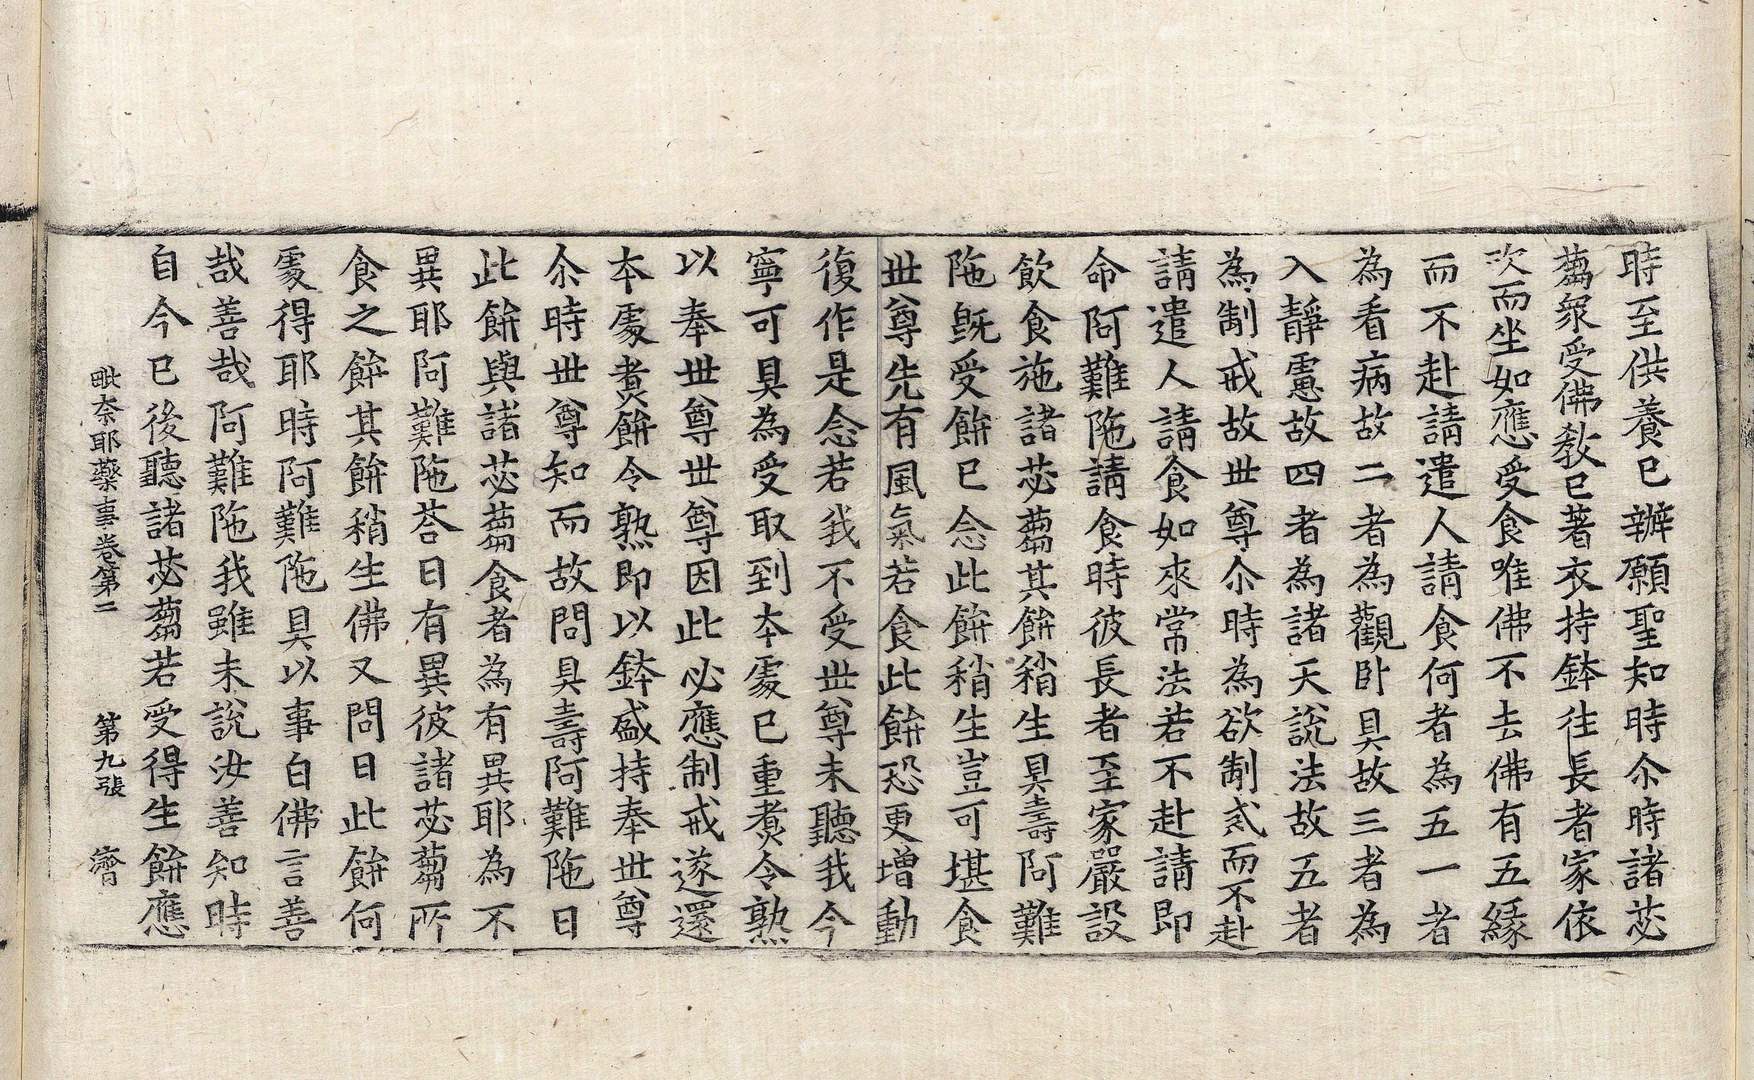 時至供養已辦願聖知時尒時諸苾
蒭衆受佛敎已著衣持鉢往長者家依
次而坐如應受食唯佛不去佛有五緣
而不赴請遣人請食何者為五一者
為看病故二者為觀卧具故三者為
入靜慮故四者為諸天說法故五者
為制戒故世尊尒時為欲制戒而不赴
請遣人請食如來常法若不赴請即
命阿難陁請食時彼長者至家嚴設
飮食施諸苾蒭其餠稍生具壽阿難
陁旣受餠已念此餠稍生豈可堪食
世尊先有風氣若食此餠恐更增動
復作是念若我不受世尊未聽我今
寧可具為受取到夲處已重煑令熟
以奉世尊世尊因此必應制戒遂還
夲處煑餠令熟即以鉢盛持奉世尊
尒時世尊知而故問具壽阿難陁曰
此餠與諸苾蒭食者為有異耶為不
異耶阿難陁荅曰有異彼諸苾蒭所
食之餠其餠稍生佛又問曰此餠何
處得耶時阿難陁具以事白佛言善
哉善哉阿難陁我雖未說汝善知時
自今已後聽諸苾蒭若受得生餠應
毗奈耶藥事卷第二 第九張 濟